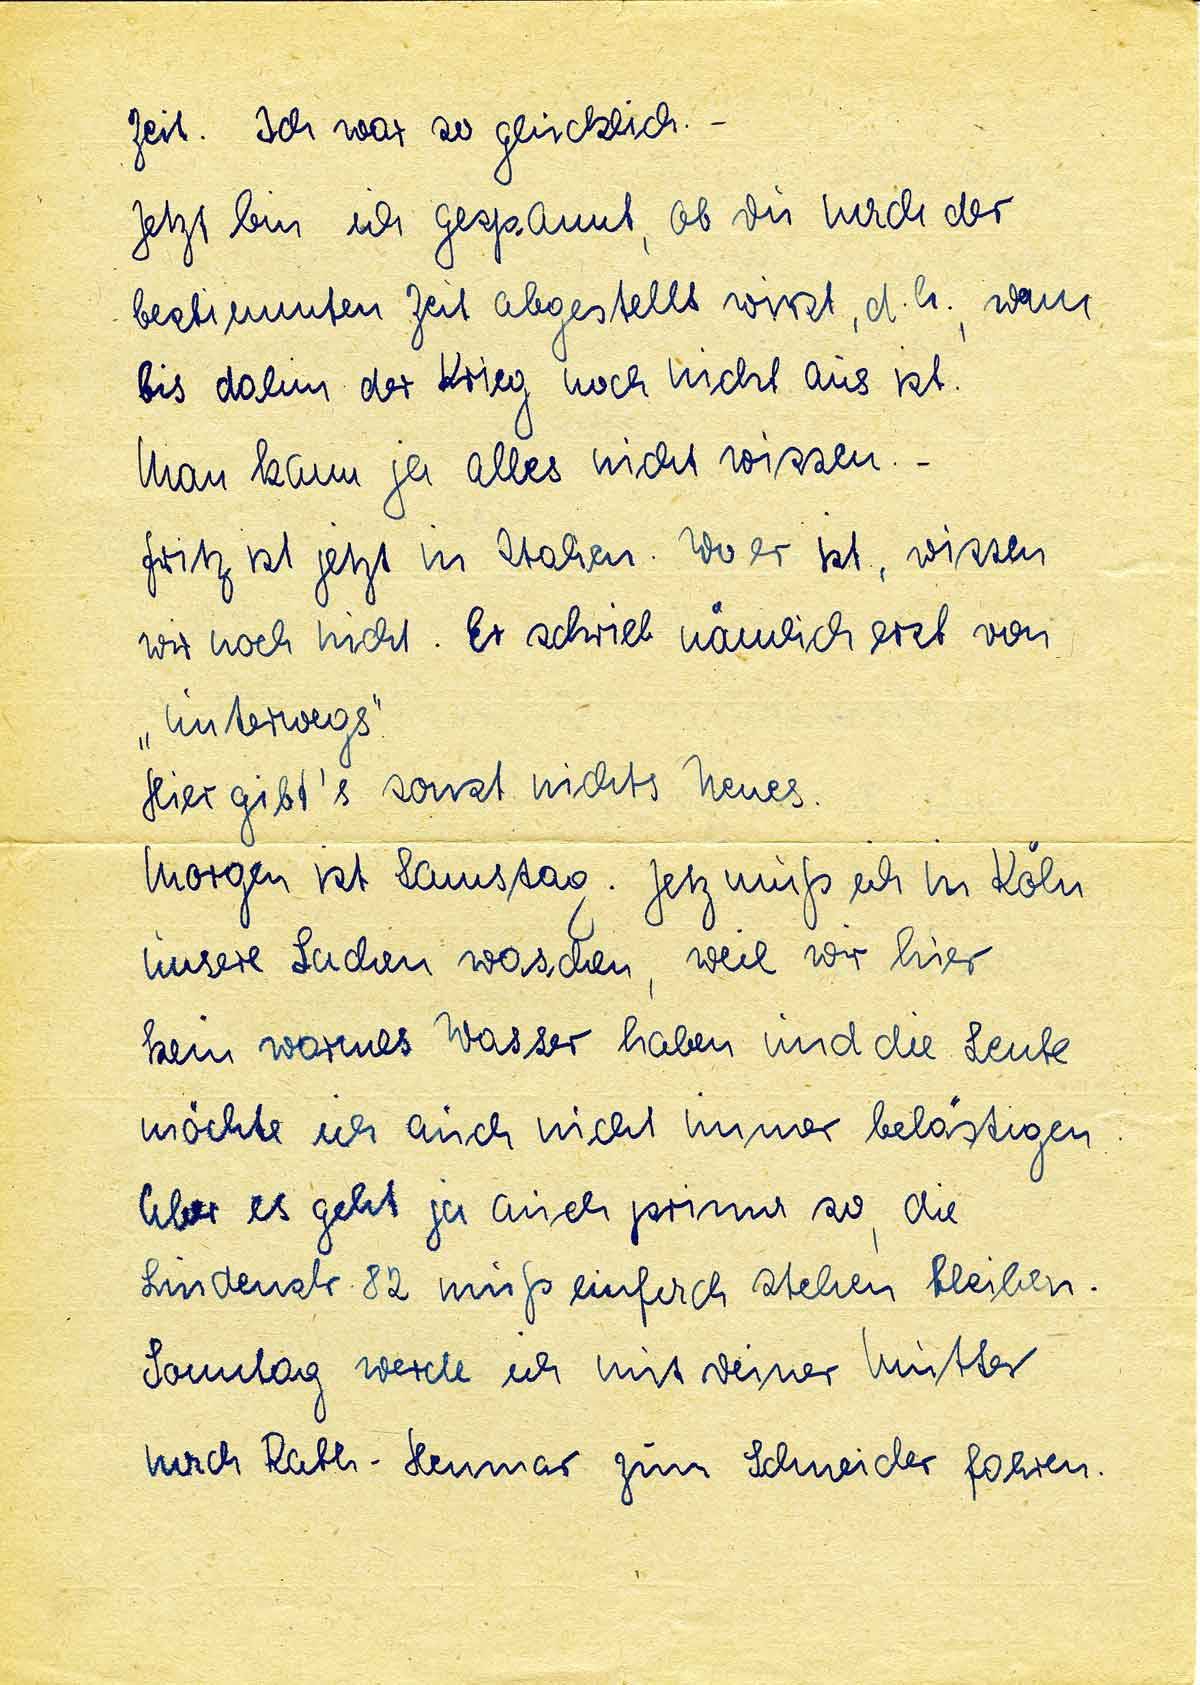 Zeit. Ich war so glücklich. –
Jetzt bin ich gespannt, ob Du nach der
bestimmten Zeit abgestellt wirst, d.h., wenn
bis dahin der Krieg noch nicht aus ist.
Man kann ja alles nicht wissen. –
Fritz ist jetzt in Italien. Wo er ist, wissen
wir noch nicht. Er schrieb nämlich erst von
„Unterwegs“.
Hier gibt's sonst nichts Neues.
Morgen ist Samstag. Jetz muß ich in Köln
unsere Sachen waschen, weil wir hier
kein warmes Wasser haben und die Leute
möchte ich auch nicht immer belästigen.
Aber es geht ja auch prima so, die
Lindenstr. 82 muß einfach stehen bleiben.
Sonntag werde ich mit Deiner Mutter
nach Rath-Heumar zum Schneider fahren.